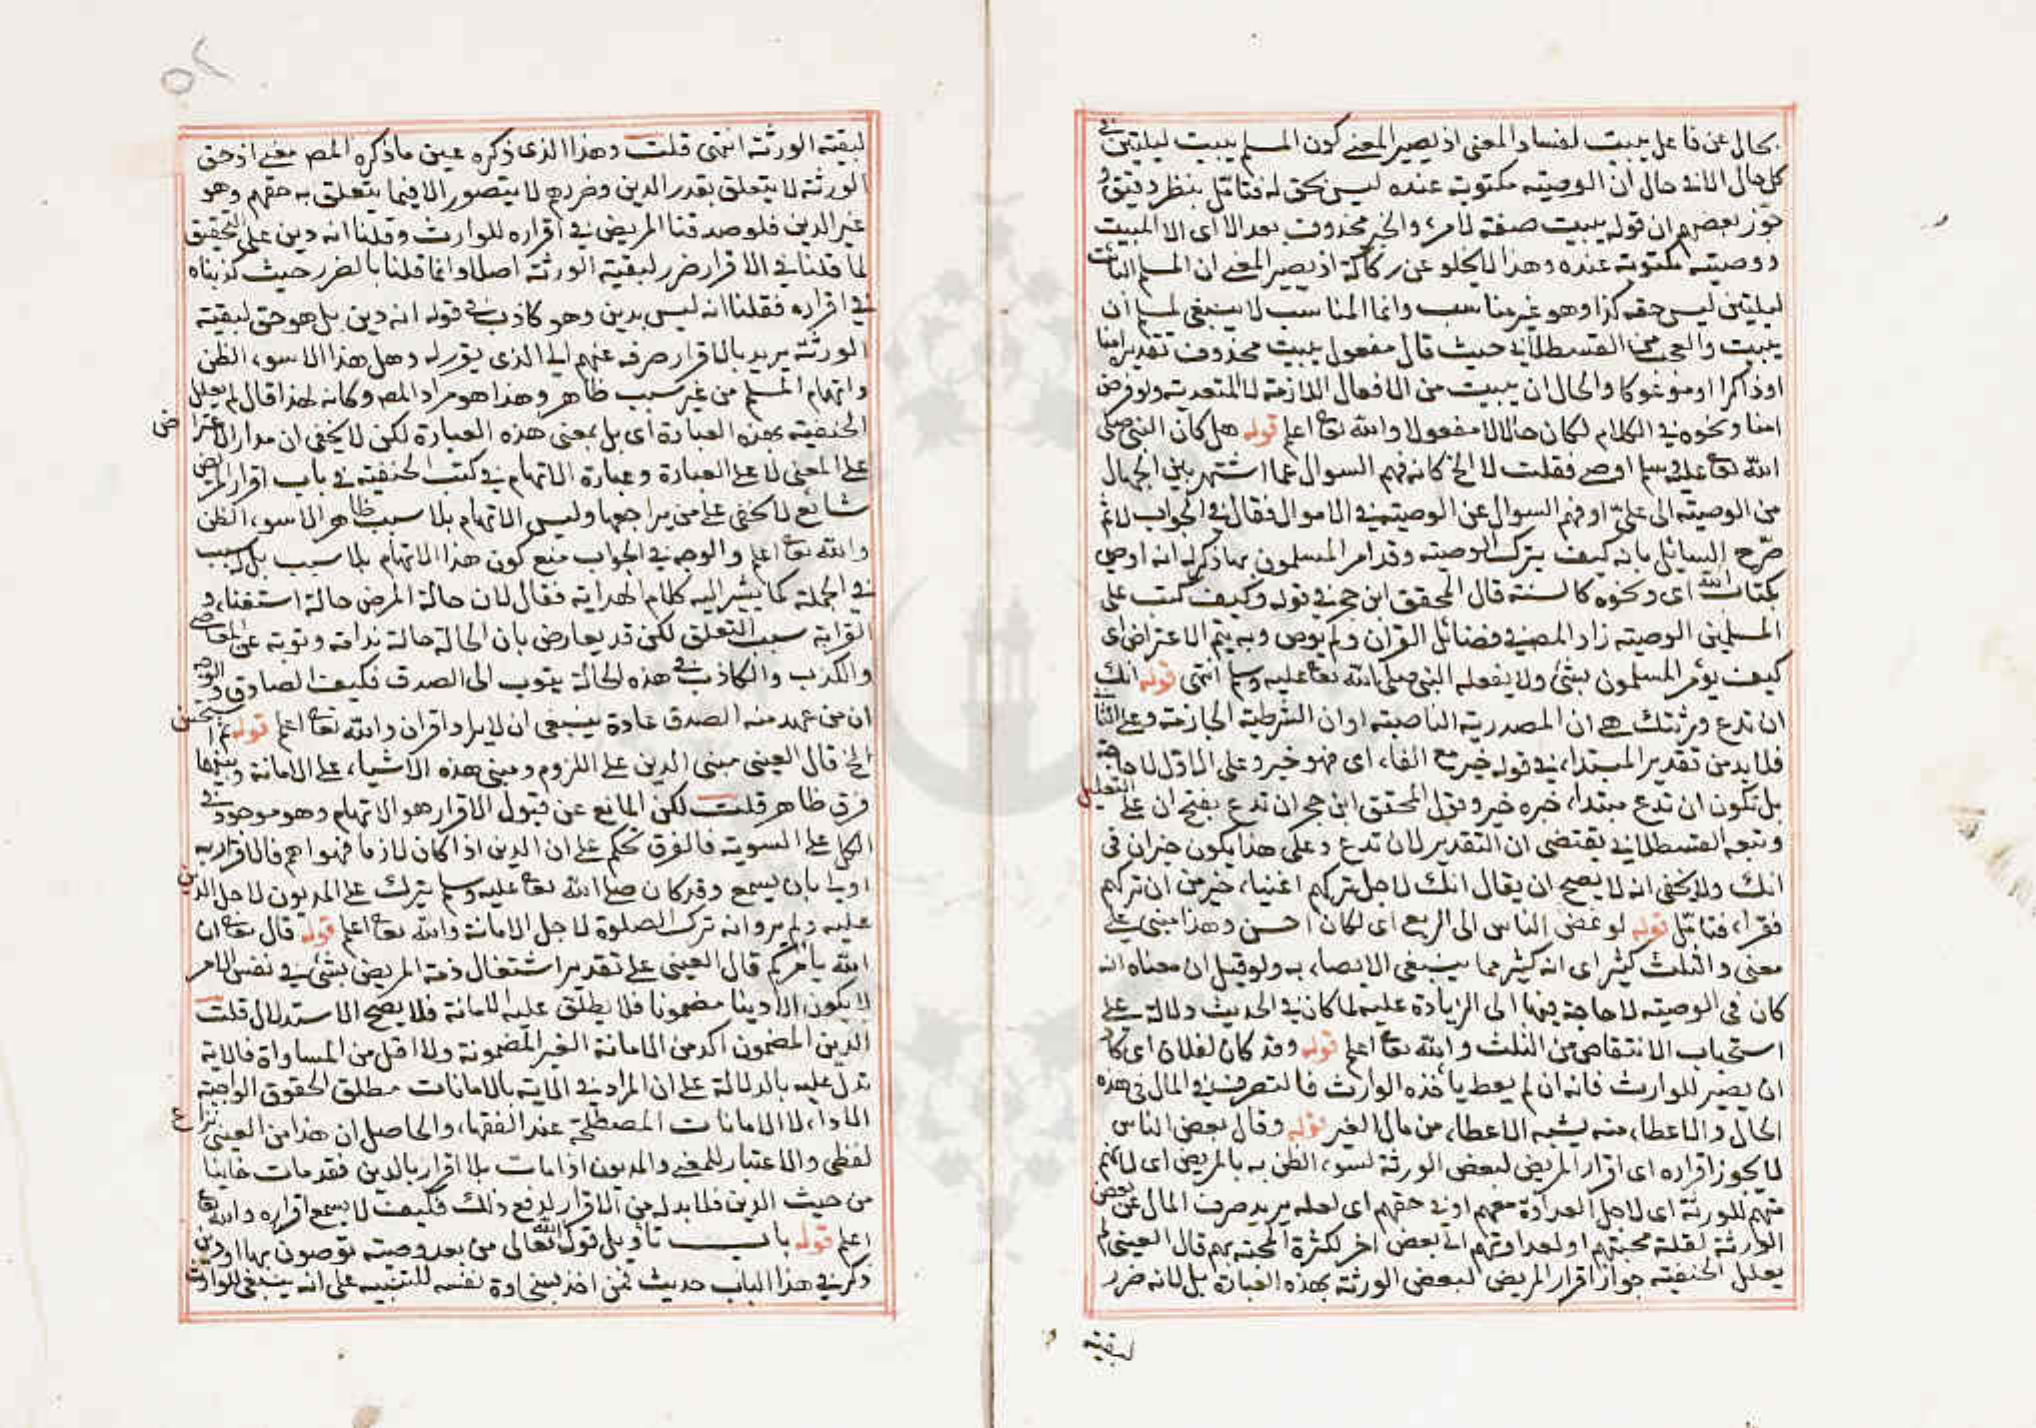 بحال عن فاعل يبيت لفساد المعنى اذ يصير المعنى كون المسلم يبيت ليلتين في
كل حال الا في حال ان الوصية مكتوبة عنده ليس بحق له فتأمل بنظر دقيق و
جوز بعضهم ان قوله يبيت صفة لامرء والخبر محذوف بعد الا اى الا المبيت
ووصيته مكتوبة عنده وهذا لا يخلو عن ركاكة اذ يصير المعنى ان المسلم البائت
ليلتين ليس حقه كذا وهو غير مناسب وانما المناسب لا ينبغي لمسلم ان
يبيت والعجب من القسطلاني حيث قال مفعول يبيت محذوف تقديره امنا
او ذاكرا او موعوكا والحال ان يبيت من الافعال اللازمة لا المتعدية ولو فرض
امنا ونحوه في الكلام لكان حالا لا مفعولا والله تعا اعلم قوله هل كان النبي صلى
الله تعا عليه وسلم اوصى فقلت لا الخ كانه فهم السوال عما اشتهر بين الجهال
من الوصية الى علي او فهم السوال عن الوصية في الاموال فقال في الجواب لا ثم
صرح السائل بانه كيف يترك الوصية وقد امر المسلمون بها ذكر له انه اوصى
بكتاب الله اى ونحوه كالسنة قال المحقق ابن حجر في قوله وكيف كتب على
المسلمين الوصية زاد المص في فضائل القران ولم يوص وبه يتم الاعتراض اى
كيف يؤمر المسلمون بشئ ولا يفعله النبي صلى الله تعا عليه وسلم انتهى قوله انك
ان تدع ورثتك هي ان المصدرية الناصبة او ان الشرطية الجازمة وعلى الثاني
فلا بد من تقدير المبتداء في قوله خير مع الفاء اى فهو خير وعلى الاول لا حاجة
بل تكون ان تدع مبتداء خبره خير وقول المحقق ابن حجر ان تدع بفتح ان على التعليل
وتبعه القسطلاني يقتضى ان التقدير لان تدع وعلى هذا يكون خبر ان في
انك ولا يخفى انه لا يصح ان يقال انك لاجل تركهم اغنياء خير من ان تركهم
فقراء فتأمل قوله لو غض الناس الى الربع اى لكان احسن وهذا مبني على
معنى والثلث كثير اى انه كثير مما ينبغي الايصاء به ولو قيل ان معناه انه
كان في الوصية لا حاجة فيها الى الزيادة عليه لما كان في الحديث دلالة على
استحباب الانتقاص من الثلث والله تعا اعلم قوله وقد كان لفلان اى كاد
ان يصير للوارث فانه ان لم يعط ياخذه الوارث فالتصرف في المال في هذه
الحال والاعطاء منه يشبه الاعطاء من مال الغير قوله وقال بعض الناس
لا يجوز اقراره اى اقرار المريض لبعض الورثة لسوء الظن به بالمريض اى لانهم
متهم للورثة اى لاجل العداوة معهم او في حقهم اى لعله يريد صرف المال عن بعض
الورثة لقلة محبتهم او لعداوتهم الى بعض اخر لكثرة المحبة بهم قال العيني لم
يعلل الحنفية جواز اقرار المريض لبعض الورثة بهذه العبارة بل لانه ضرر
لبقية
لبقية الورثة انتهى قلت وهذا الذى ذكره عين ما ذكره المص معنى اذ حق
الورثة لا يتعلق بقدر الدين وضررهم لا يتصور الا فيما يتعلق به حقهم وهو
غير الدين فلو صدقنا المريض في اقراره للوارث وقلنا انه دين على التحقيق
لما قلنا في الاقرار ضرر لبقية الورثة اصلا وانما قلنا بالضرر حيث كذبناه
في اقراره فقلنا انه ليس بدين وهو كاذب في قوله انه دين بل هو حق لبقية
الورثة يريد بالاقرار صرفه عنهم الى الذى يقر له وهل هذا الا سوء الظن
واتهام المسلم من غير سبب ظاهر وهذا هو مراد المص وكانه لهذا قال لم يعلل
الحنفية بهذه العبارة اى بل بمعنى هذه العبارة لكن لا يخفى ان مدار الاعتراض
على المعنى لا على العبارة وعبارة الاتهام في كتب الحنفية في باب اقرار المريض
شائع لا يخفى على من يراجعها وليس الاتهام بلا سبب ظاهر الا سوء الظن
والله تعا اعلم والوجه في الجواب منع كون هذا الاتهام بلا سبب بل بسبب
في الجملة كما يشير اليه كلام الهداية فقال لان حالة المرض حالة استغناء و
القرابة سبب التعلق لكن قد يعارض بان الحالة حالة ندامة وتوبة عن المعاصي
والكذب والكاذب في هذه الحالة يتوب الى الصدق فكيف الصادق والوجه
ان من عهد منه الصدق عادة ينبغي ان لا يرد اقراره والله تعا اعلم قوله ثم استحسن
الخ قال العيني مبنى الدين على اللزوم ومبنى هذه الاشياء على الامانة وبينهما
فرق ظاهر قلت لكن المانع عن قبول الاقرار هو الاتهام وهو موجود في
الكل على السوية فالفرق تحكم على ان الدين اذا كان لازما فهو اهم فالاقرار به
اولى بان يسمع وقد كان صلى الله تعا عليه وسلم يترك على المديون لاجل الدين
عليه ولم يرو انه ترك الصلوة لاجل الامانة والله تعا اعلم قوله قال تعا ان
الله يأمركم قال العيني على تقدير اشتغال ذمة المريض بشئ في نفس الامر
لا يكون الا دينا مضمونا فلا يطلق عليه الامانة فلا يصح الاستدلال قلت
الدين المضمون اكد من الامانة الغير المضمونة ولا اقل من المساواة فالاية
تدل عليه بالدلالة على ان المراد في الاية بالامانات مطلق الحقوق الواجبة
الاداء لا الامانات المصطلحة عند الفقهاء والحاصل ان هذا من العيني نزاع
لفظى والاعتبار للمعنى والمديون اذا مات بلا اقرار بالدين فقد مات خاينا
من حيث الدين فلا بد له من الاقرار لدفع ذلك فكيف لا يسمع اقراره والله تعا
اعلم قوله باب تاويل قول الله تعالى من بعد وصية توصون بها او دين
ذكر في هذا الباب حديث فمن اخذ بسخاوة نفسه للتنبيه على انه ينبغي للوارث